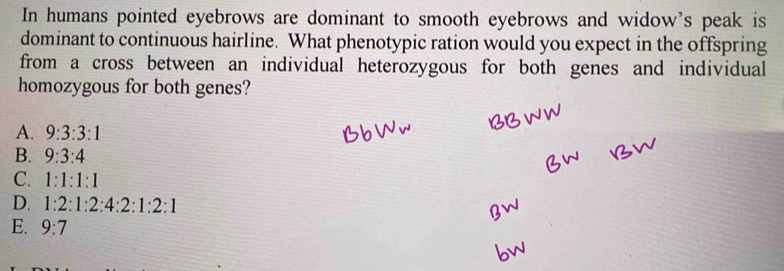 In humans pointed eyebrows are dominant to smooth eyebrows and widow's peak is
dominant to continuous hairline. What phenotypic ration would you expect in the offspring
from a cross between an individual heterozygous for both genes and individual
homozygous for both genes?
A. 9:3:3:1
B. 9:3:4
C. 1:1:1:1
D. 1:2:1:2:4:2:1:2:1
E. 9:7
BbWw
BBWW
BW BW
BW
bW